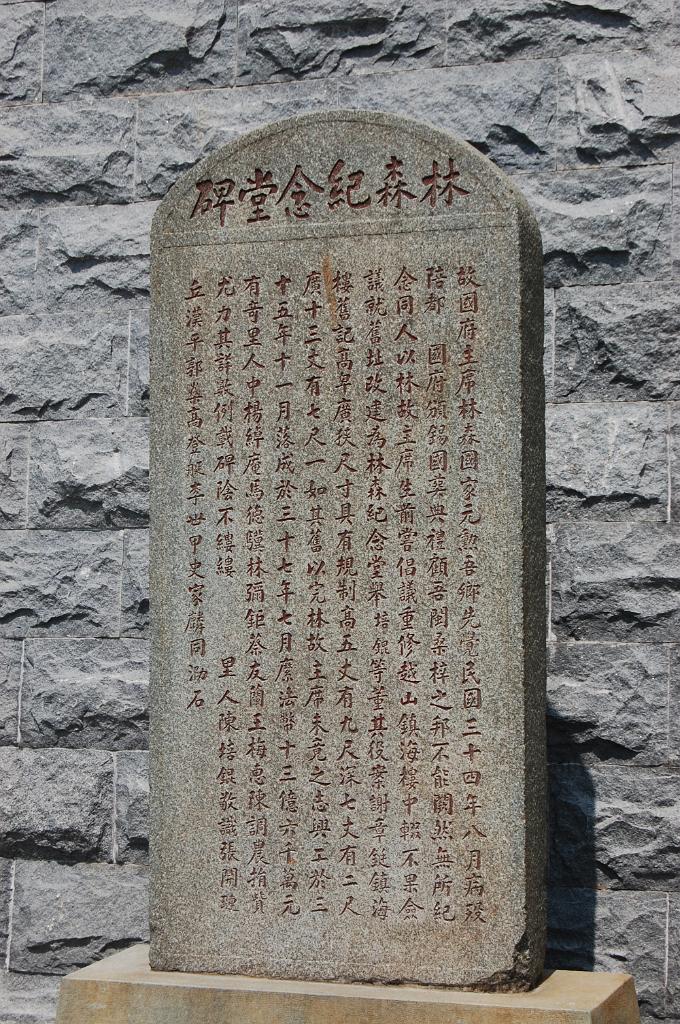 林森紀念堂碑
故國府主席林森國家元勲吾鄉先覺民國三十四年八月病殁
陪都 國府頒錫國喪典禮顧吾閩桑梓之邦不能闕然無所紀
念同人以林故主席生前嘗倡議重修越山鎮海樓中輟不果僉
議就舊址改建為林森紀念堂舉培錕等董其役案謝章鋌鎮海
樓舊記高卑廣狹尺寸具有規制高五丈有九尺深七丈有二尺
廣十三丈有七尺一如其舊以完林故主席未竟之志興工於三
十五年十一月落成於三十七年七月縻法幣十三億六千萬元
有奇里人中楊綽庵馬德驥林彌鉅蔡友蘭王梅惠陳調農捐貲
尤力其詳款例載碑陰不縷縷 里人陳培錕敬識張開璉
丘漢平郭 高登艇李世甲史家麟同泐石